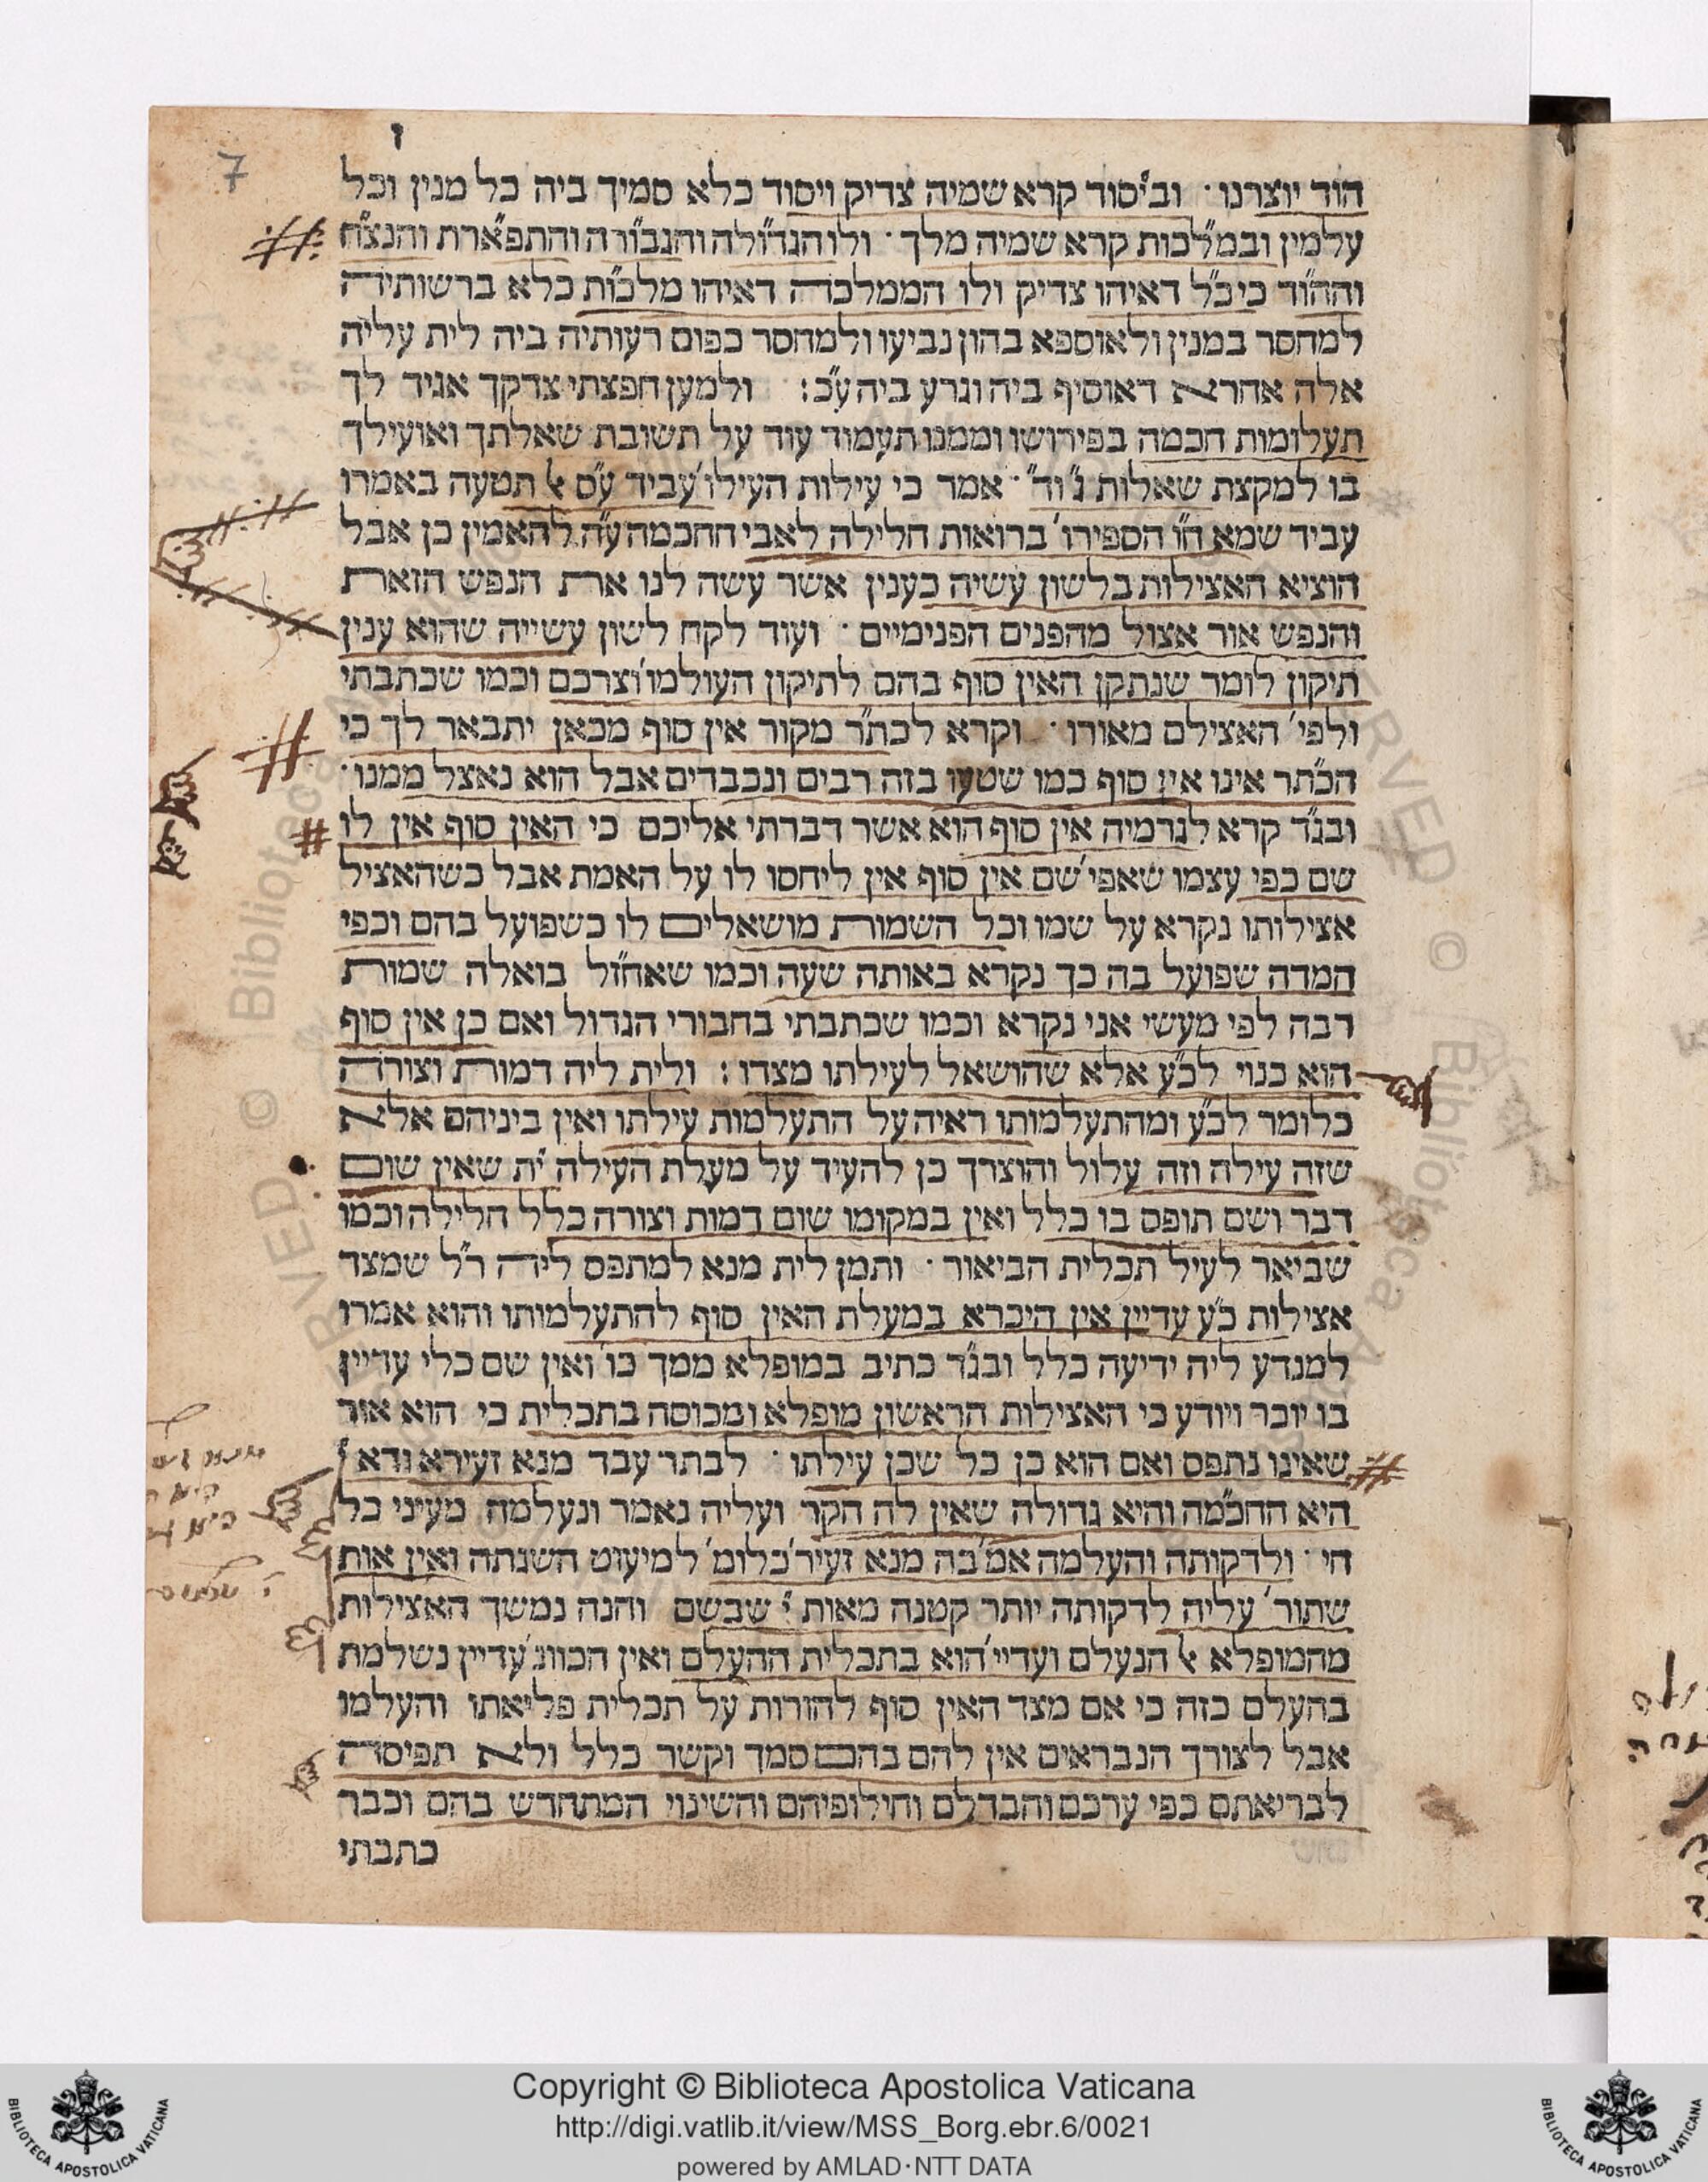 ז
7
הוד יוצרנו · וביסוד קרא שמיה צדיק ויסוד כלא סמיך ביה כל מנין וכל
עלמין ובמ״לכות קרא שמיה מלך · ולו הגד״ולה והגב״ורה והתפ״ארת והנצ״ח
והה״וד כי כ״ל דאיהו צדיק ולו הממלכה דאיהו מלכ״ות כלא ברשותיה
למחסר במנין ולאוספא בהון נביעו ולמחסר כפום רעותיה ביה לית עליה
אלה אחרא דאוסיף ביה וגרע ביה ע״כ : ולמען חפצתי צדקך אגיד לך
תעלומות חכמה בפירושו וממנו תעמוד עוד על תשובת שאלתך ואועילך
בו למקצת שאלות ג״ וד״ · אמר כי עילות העילו׳ עביד ע״ס אל תטעה באמרו
עביד שמא ח״ו הספירו׳ ברואות חלילה לאבי החכמה ע״ה להאמין כן אבל
הוציא האצילות בלשון עשיה כענין אשר עשה לנו את הנפש הזאת
והנפש אור אצול מהפנים הפנימיים · ועוד לקח לשון עשייה שהוא ענין
תיקון לומר שנתקן האין סוף בהם לתיקון העולמו׳ וצרכם וכמו שכתבתי
ולפי׳ האצילם מאורו · וקרא לכת״ר מקור אין סוף מכאן יתבאר לך כי
הכ״תר אינו אין סוף כמו שטעו בזה רבים ונכבדים אבל הוא נאצל ממנו ·
ובג״ד קרא לגרמיה אין סוף הוא אשר דברתי אליכם כי האין סוף אין לו
שם כפי עצמו שאפי׳ שם אין סוף אין ליחסו לו על האמת אבל כשהאציל
אצילותו נקרא על שמו וכל השמות מושאלים לו כשפועל בהם וכפי
המדה שפועל בה כך נקרא באותה שעה וכמו שאחז״ל בואלה שמות
רבה לפי מעשי אני נקרא וכמו שכתבתי בחבורי הגדול ואם כן אין סוף
הוא כנוי לכ״ע אלא שהושאל לעילתו מצדו : ולית ליה דמות וצורה
כלומר לכ״ע ומהתעלמותו ראיה על התעלמות עילתו ואין ביניהם אלא
שזה עילה וזה עלול והוצרך כן להעיד על מעלת העילה ית׳ שאין שום
דבר ושם תופס בו כלל ואין במקומו שום דמות וצורה כלל חלילה וכמו
שביאר לעיל תכלית הביאור · ותמן לית מנא למתפס ליה ר״ל שמצד
אצילות כ״ע עדיין אין היכרא במעלת האין סוף להתעלמותו והוא אמרו
למנדע ליה ידיעה כלל ובג״ד כתיב במופלא ממך כו׳ ואין שם כלי עדיין
בו יוכר ויודע כי האצילות הראשון מופלא ומכוסה בתכלית כי הוא אור
שאינו נתפס ואם הוא כן כל שכן עילתו · לבתר עבד מנא זעירא ודא י׳
היא החכ״מה והיא גדולה שאין לה חקר ועליה נאמר ונעלמה מעיני כל
חי · ולדקותה והעלמה אמ׳ בה מנא זעיר׳ כלומ׳ למיעוט השגתה ואין אות
שתור׳ עליה לדקותה יותר קטנה מאות י׳ שבשם והנה נמשך האצילות
מהמופלא אל הנעלם ועדיי׳ הוא בתכלית ההעלם ואין הכוונ׳ עדיין נשלמת
בהעלם כזה כי אם מצד האין סוף להורות על תכלית פליאתו והעלמו
אבל לצורך הנבראים אין להם בהם סמך וקשר כלל ולא תפיסה
לבריאתם כפי ערכם והבדלם וחילופיהם והשינוי המתחדש בהם וכבר
כתבתי
Copyright © Biblioteca Apostolica Vaticana
http://digi.vatlib.it/view/MSS_Borg.ebr.6/0021
powered by AMLAD·NTT DATA